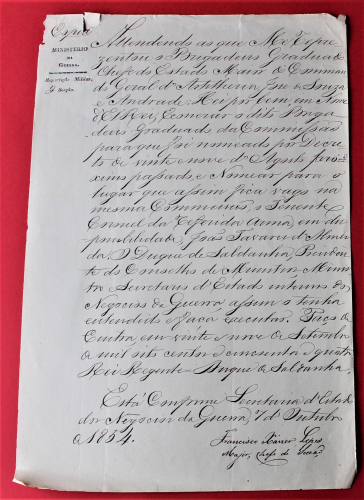 Copia
MINISTERIO
DA
GUERRA.
Repartição Militar,
4ª Secção.
Attendendo ao que Me Repre
zentou o Brigadeiro Graduado
Chefe do Estado Maior do Comman
do Geral d'Artilheria José de Souza
e Andrade: Hei por bem, em Nome
d'ElRei, Exonerar o dito Briga
deiro Graduado da Commissão
para que foi nomeado por Decre
to de vinte e nove d'Agosto proxi
ximo passado, e Nomear para o
lugar que assim fica vago na
mesma Commissão, o Tenente
Coronel da referida Arma, em dis
ponibilidade, João Tavares d'Almei
da. O Duque de Saldanha, Presiden
te do Conselho de Ministros, Ministro
e Secretario d'Estado interino dos
Negocios da Guerra, assim o tenha
entendido e faça executar. Paço
de Cintra, em vinte e nove de Setembro
de mil oito centos e cincoenta e quatro
Rei Regente = Duque de Saldanha.
Está Conforme. Secretaria d'Estado
dos Negocios da Guerra, 7 d'Outubro
de 1854.
Francisco Xavier Lopes
Major, Chefe da Secção